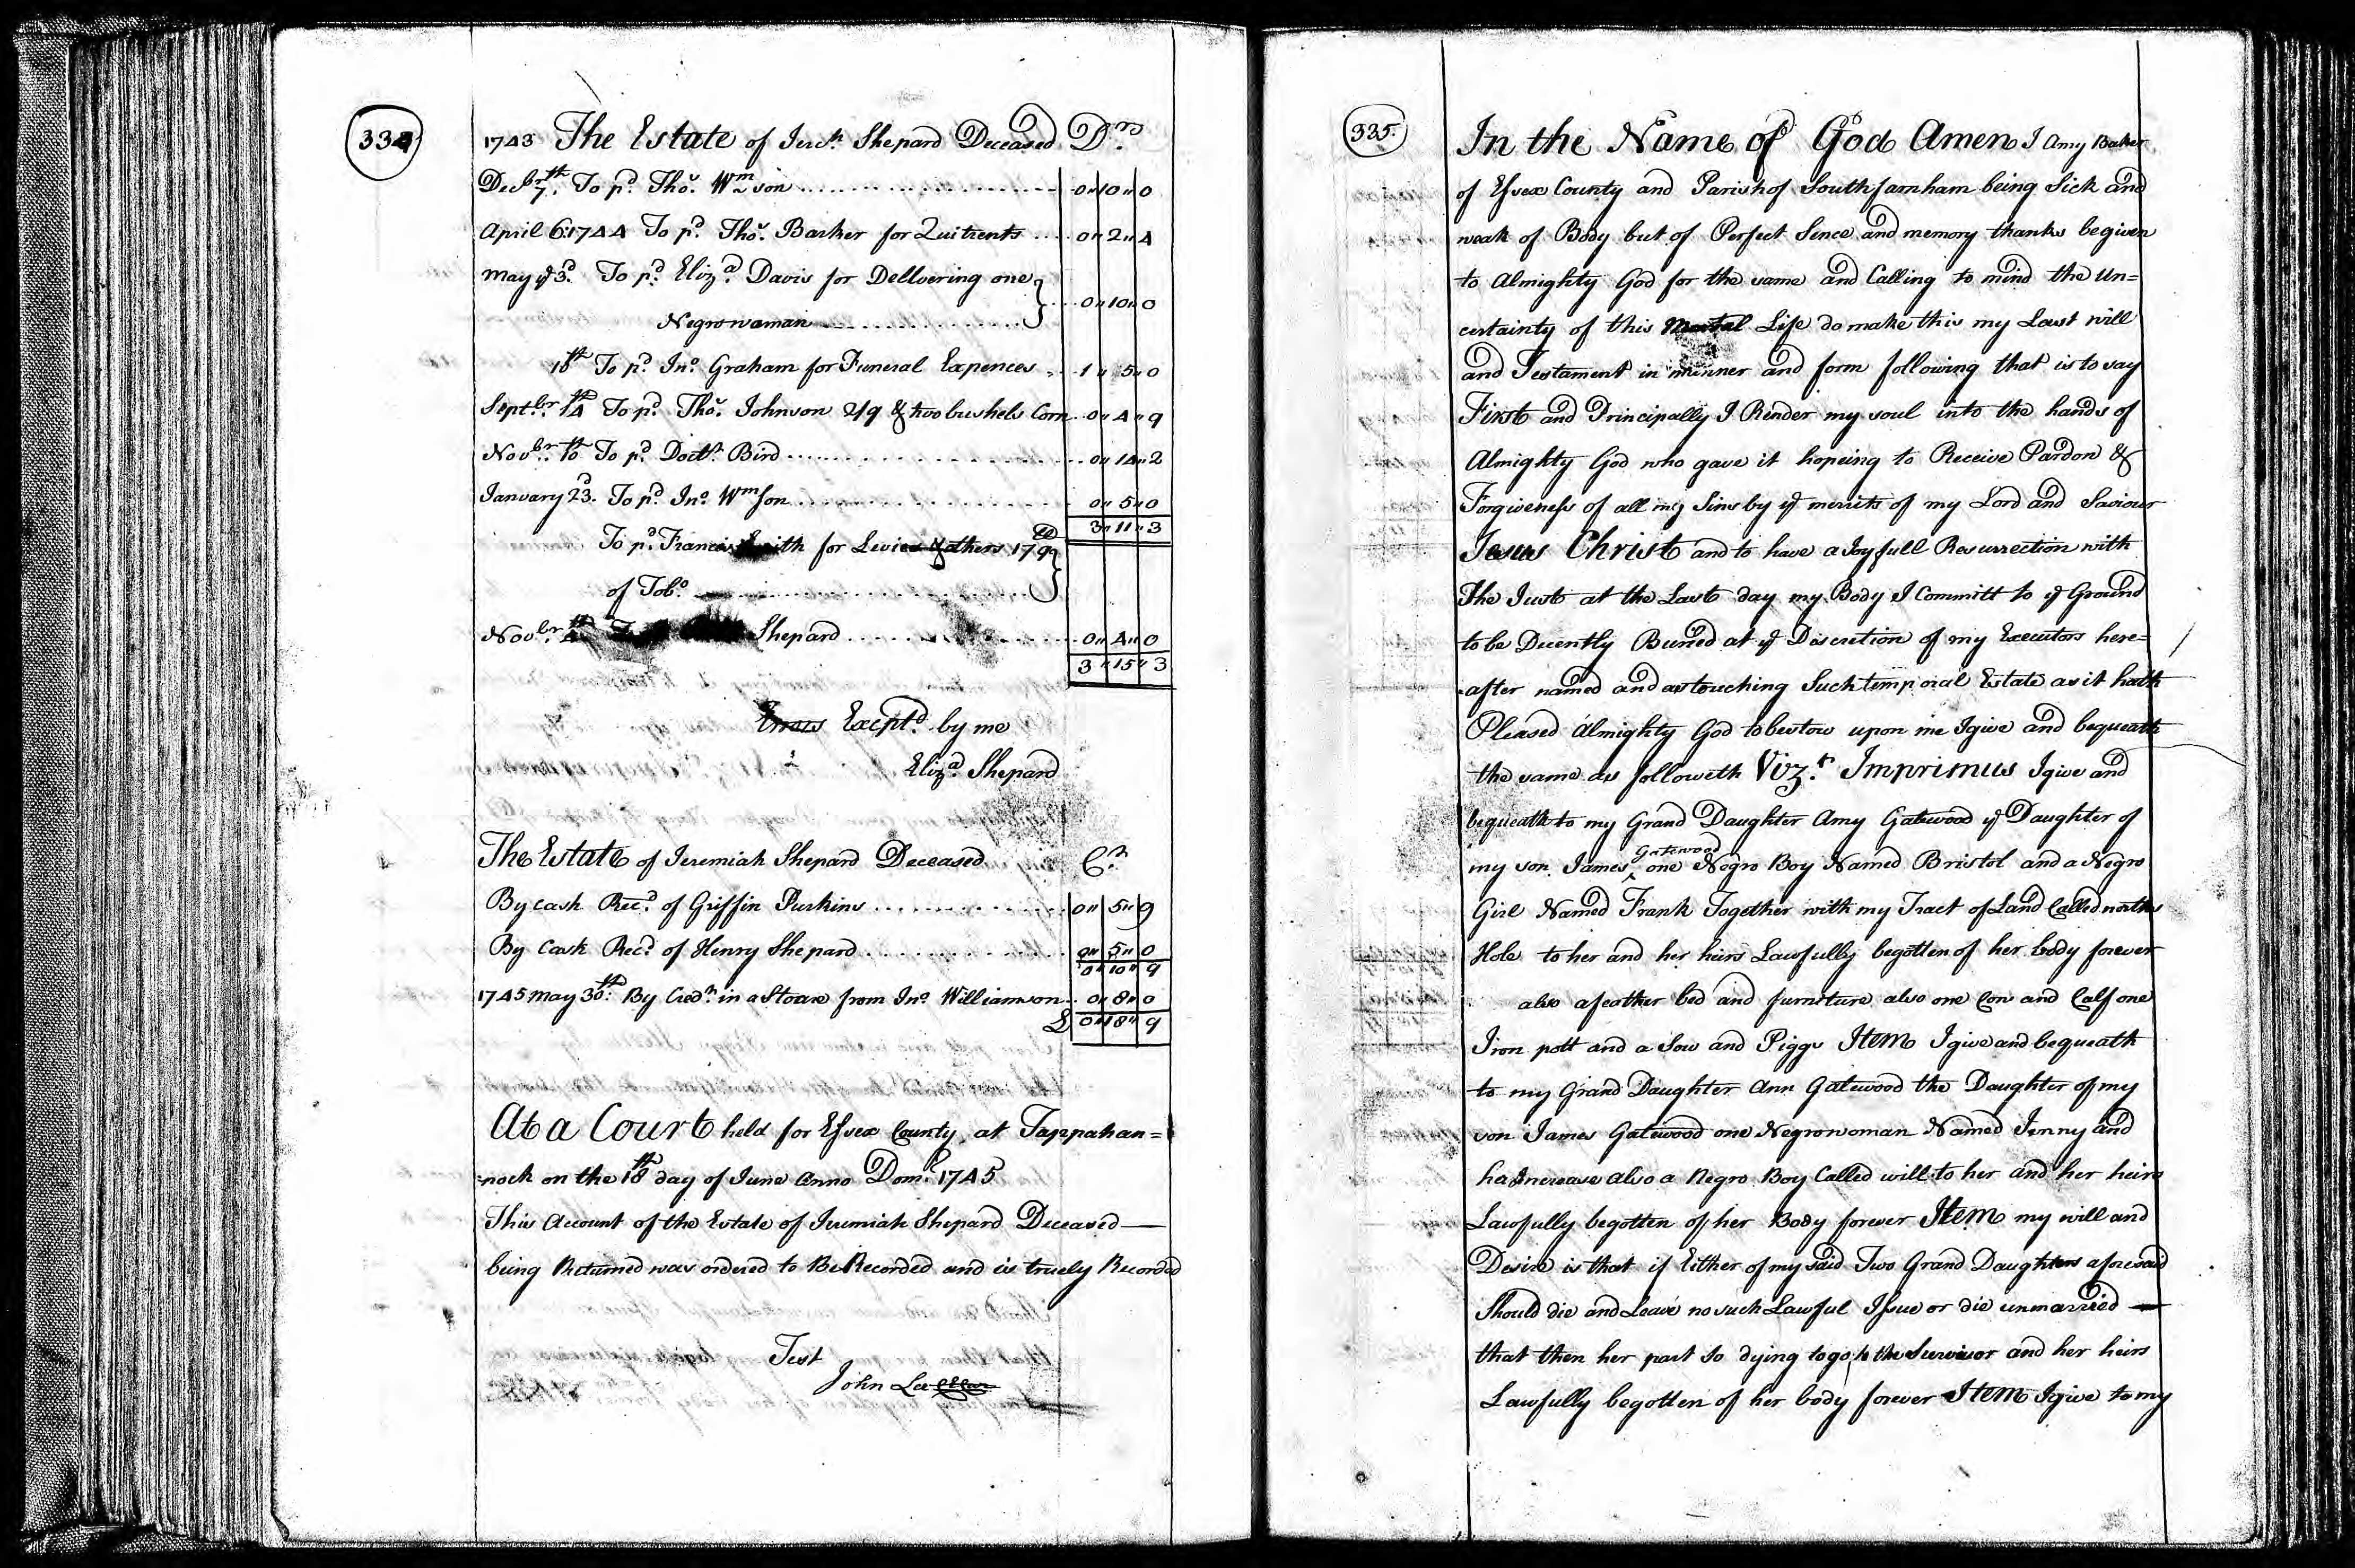 334
1743 The Estate of Jerh. Shepard Deceased Dr.
Decbr. 7th. To pd. Thos. Wmson 0,, 10,, 0
April 6: 1744 To pd. Thos. Barker for Quitrents 0,, 2,, 4
May ye 3d. To pd. Eliza. Davis for Dellvering one
Negrowaman 0,, 10,, 0
18th To pd. Jno. Graham for Funeral Expences 1,, 5,, 0
Septbr. 14th To pd. Thos. Johnson 2/9 & two bushels Corn 0,, 4,, 9
Novbr. 10th To pd. Doctr. Bird 0,, 14,, 2
January 23d. To pd. Jno. Wmson 0,, 5,, 0
3,, 11,, 3
To pd. Francis Smith for Levies & others 179
of Tobo.
Novbr. Shepard 0,, 4,, 0
3,, 15,, 3
Errors Excptd. by me
Eliza. Shepard
The Estate of Jeremiah Shepard Deceased Cr.
By cash Recd. of Griffin Purkins 0,, 5,, 9
By Cash Recd. of Henry Shepard 0,, 5,, 0
0,, 10,, 9
1745 May 30th. By Credr. in a Stoare from Jno. Williamson 0,, 8,, 0
£ 0,, 18,, 9
At a Court held for Essex County, at Tappahan=
=nock on the 18th day of June Anno Dom. 1745
This Account of the Estate of Jeremiah Shepard Deceased
being Returned was ordered to Be Recorded and is truely Recorded
Test
John Lee
335.
In the Name of God Amen I Amy Baker
of Essex County and Parish of Southfarnham being Sick and
weak of Body but of Perfect Sence and memory thanks be given
to Almighty God for the same and Calling to mind the Un=
certainty of this Mortal Life do make this my Last will
and Testament in manner and form following that is to say
First and Principally I Render my soul into the hands of
Almighty God who gave it hopeing to Receive Pardon &
Forgiveness of all my Sins by ye merrits of my Lord and Saviour
Jesus Christ and to have a Joyfull Resurrection with
The Just at the Last day my Body I Committ to ye Ground
to be Decently Buried at ye Discretion of my Executors here=
after named and as touching Such temporal Estate as it hath
Pleased Almighty God to bestow upon me I give and bequeath
the same as followeth Vizt. Imprimus I give and
bequeath to my Grand Daughter Amy Gatewood ye Daughter of
my son James Gatewood one Negro Boy Named Bristol and a Negro
Girl Named Frank Together with my Tract of Land Called norths
Hole to her and her heirs Lawfully begotten of her body forever
also a feather bed and furniture also one Cow and Calf one
Iron pott and a Sow and Piggs Item I give and bequeath
to my Grand Daughter Ann Gatewood the Daughter of my
son James Gatewood one Negrowoman Named Jenny and
ha Increase also a Negro Boy Called will to her and her heirs
Lawfully begotten of her Body forever Item my will and
Desire is that if Either of my said Two Grand Daughters aforesaid
Should die and Leave no such Lawful Issue or die unmarried
that then her part so dying to go to the Survivor and her heirs
Lawfully begotten of her body forever Item I give to my